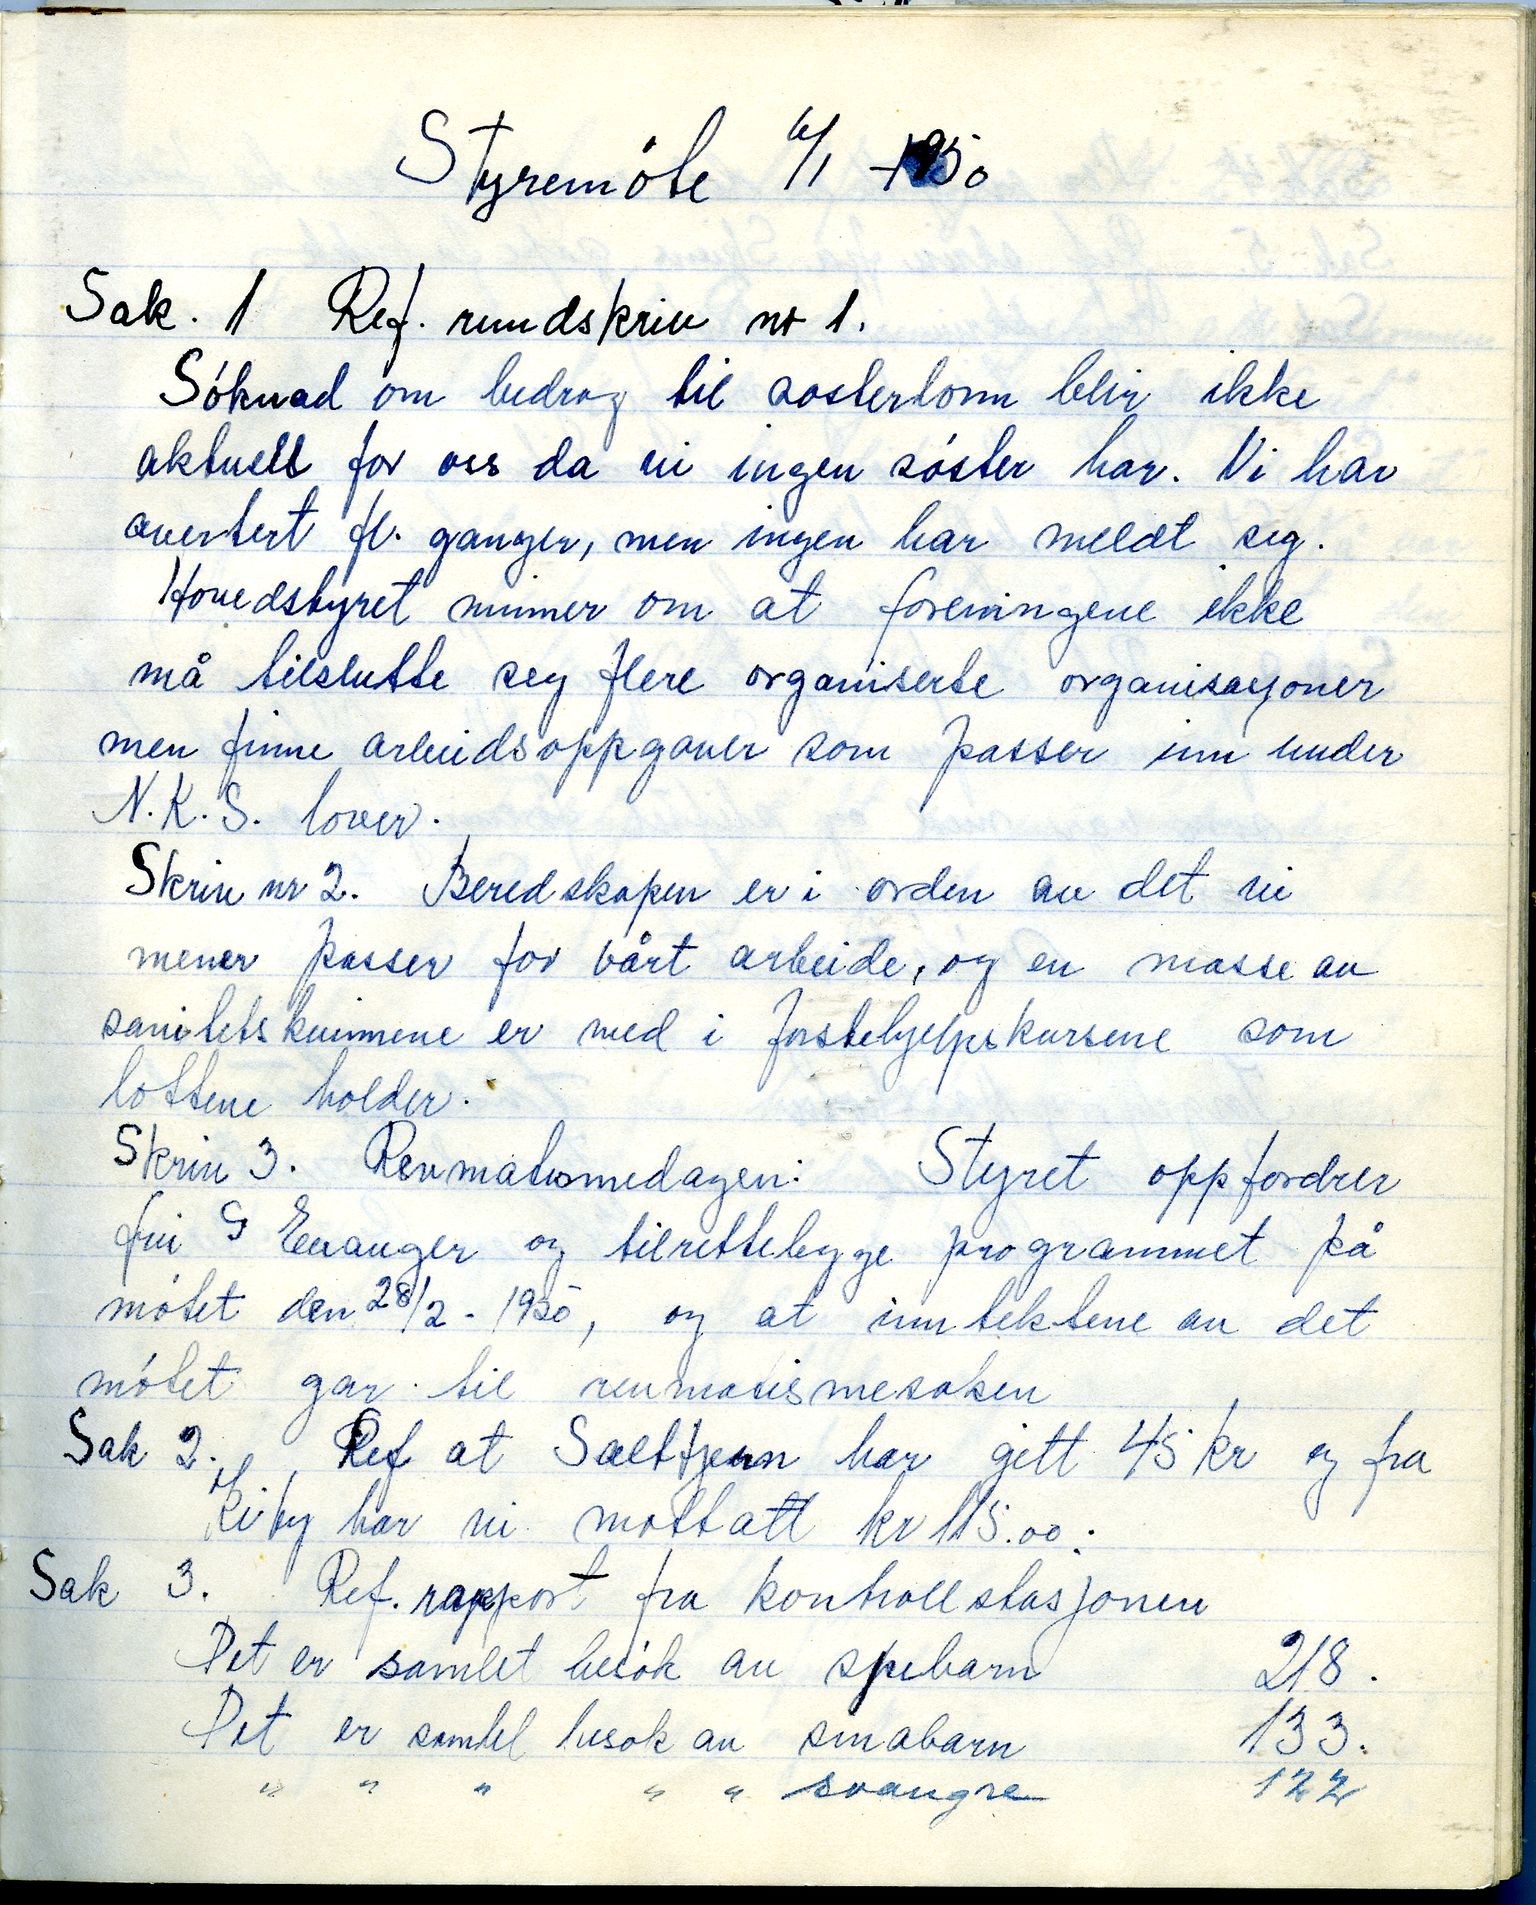 Styremöte 6/1 - 1950
Sak. 1 Ref. rundskriv nr 1.
Söknad om bedrag til sosterlonn blir ikke
aktuell for oss da vi ingen söster har. Vi har
avertert fl. ganger, men ingen har meldt seg.
Hovedstyret minner om at foreningene ikke
må tilslutte seg flere organiserte organisasjoner
men finne arbeidsoppgaver som passer inn under
N.K.S. lover.
Skriv nr 2. Beredskapen er i orden av det vi
mener passer for vårt arbeide, og en masse av
sanitetskvinnene er med i forstehjelpskursene som
lottene holder.
Skriv 3. Revmatismedagen: Styret oppfordrer
fru G Evanger og tilrettelegge programmet på
mötet den 28/2 - 1950, og at inntektene av det
mötet gar til revmatismesaken
Sak 2. Ref at Saltfjern har gitt 45 kr og fra
Kiby har vi mottatt kr 115.00.
Sak 3. Ref. rapport fra kontrollstasjonen
Det er samlet besök av spebarn 218.
Det er samlet besok av smabarn 133.
" " " " " svangre 122